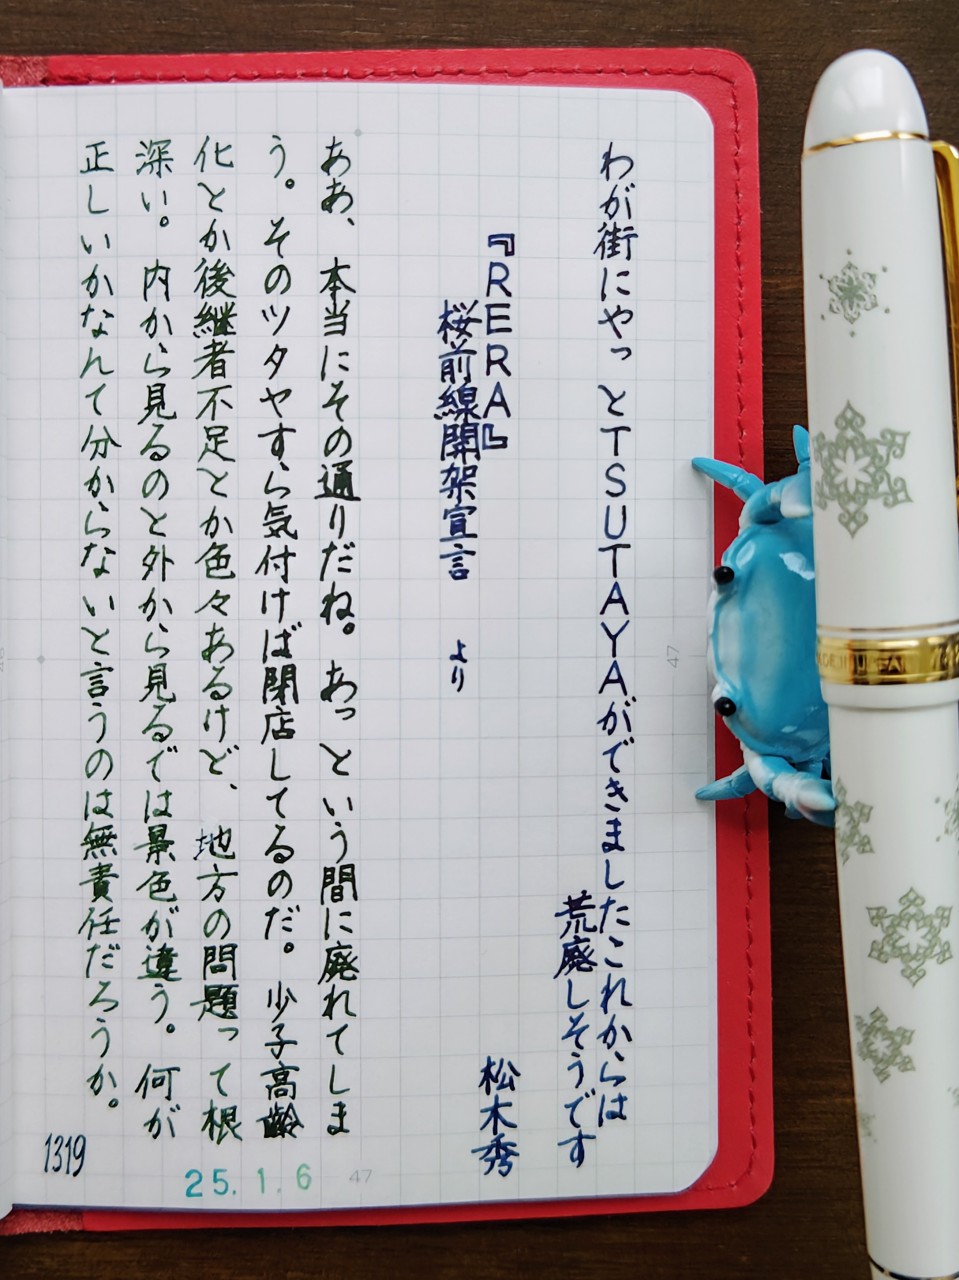 わが街にやっとTSUTAYAができましたこれからは
荒廃しそうです
『RERA』
松木秀
桜前線開架宣言 より
ああ、本当にその通りだね。あっという間に廃れてしま
う。そのツタヤすら気付けば閉店してるのだ。少子高齢
化とか後継者不足とか色々あるけど、地方の問題って根
深い。内から見るのと外から見るでは景色が違う。何が
正しいかなんて分からないと言うのは無責任だろうか。
1319
25.1.6
47
47